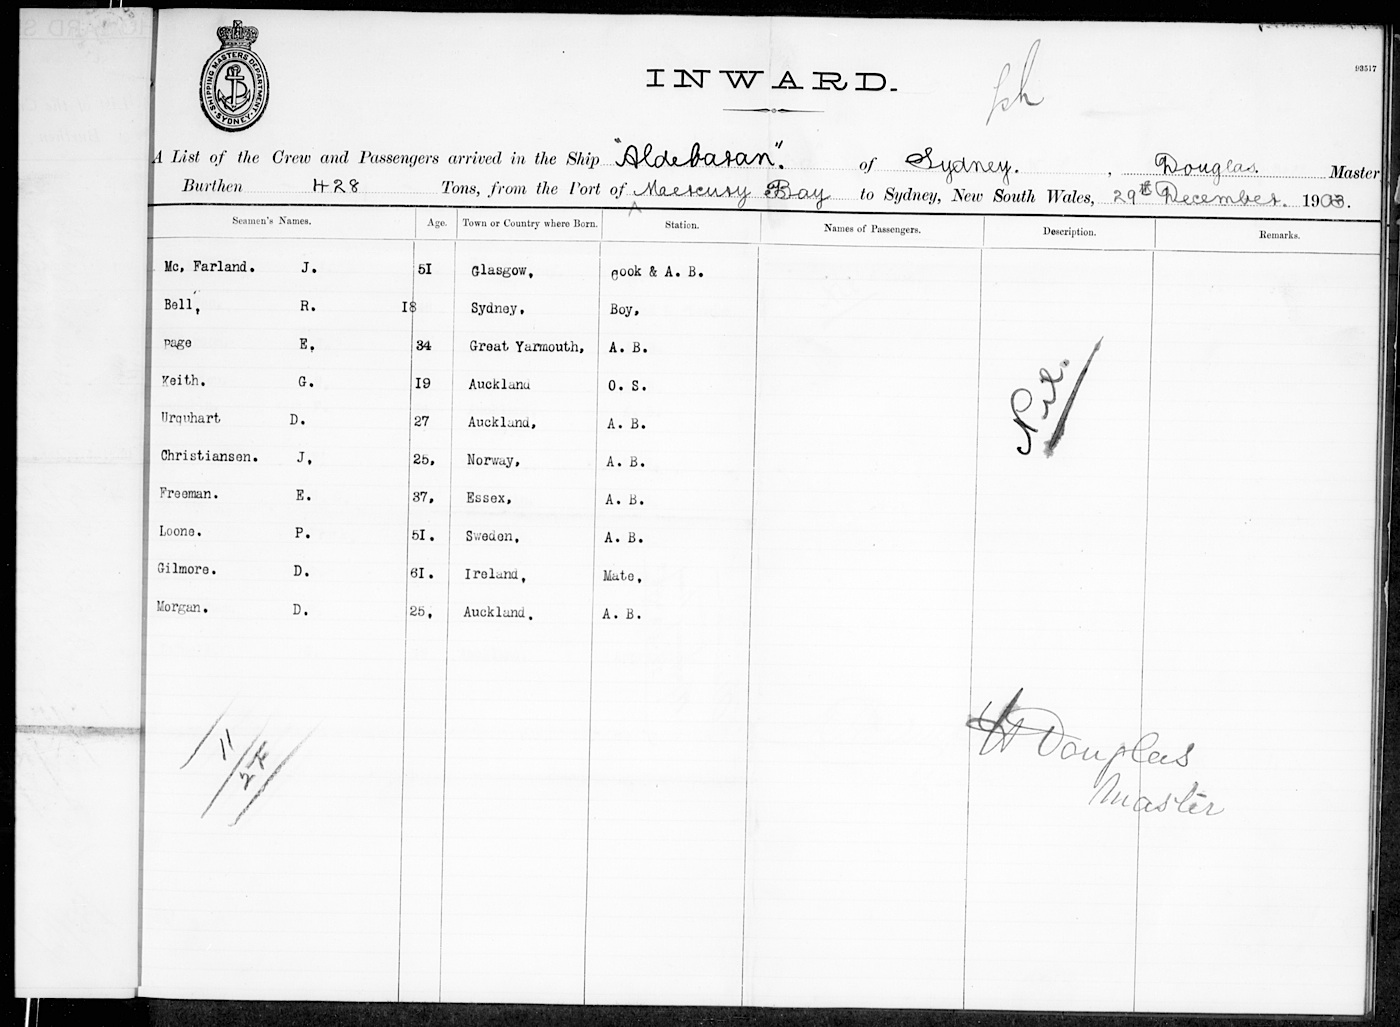 SHIPPING MASTERS DEPARTMENT
SYDNEY
INWARD.
93517
A List of the Crew and Passengers arrived in the Ship "Aldebaran". of Sydney. , Douglas. Master
Burthen 428 Tons, from the Port of Mercury Bay to Sydney, New South Wales, 29th December. 1903.
Seamen's Names. Age. Town or Country where Born. Station. Names of Passengers. Description. Remarks.
Mc, Farland. J. 51 Glasgow, Cook & A. B.
Bell, R. 18 Sydney, Boy,
Page E, 34 Great Yarmouth, A. B.
Keith. G. 19 Auckland O. S.
Urquhart D. 27 Auckland, A. B.
Christiansen. J, 25, Norway, A. B.
Freeman. E. 37, Essex, A. B.
Loone. P. 51. Sweden, A. B.
Gilmore. D. 61. Ireland, Mate,
Morgan. D. 25, Auckland, A. B.
Nil.
11
H Douglas
Master